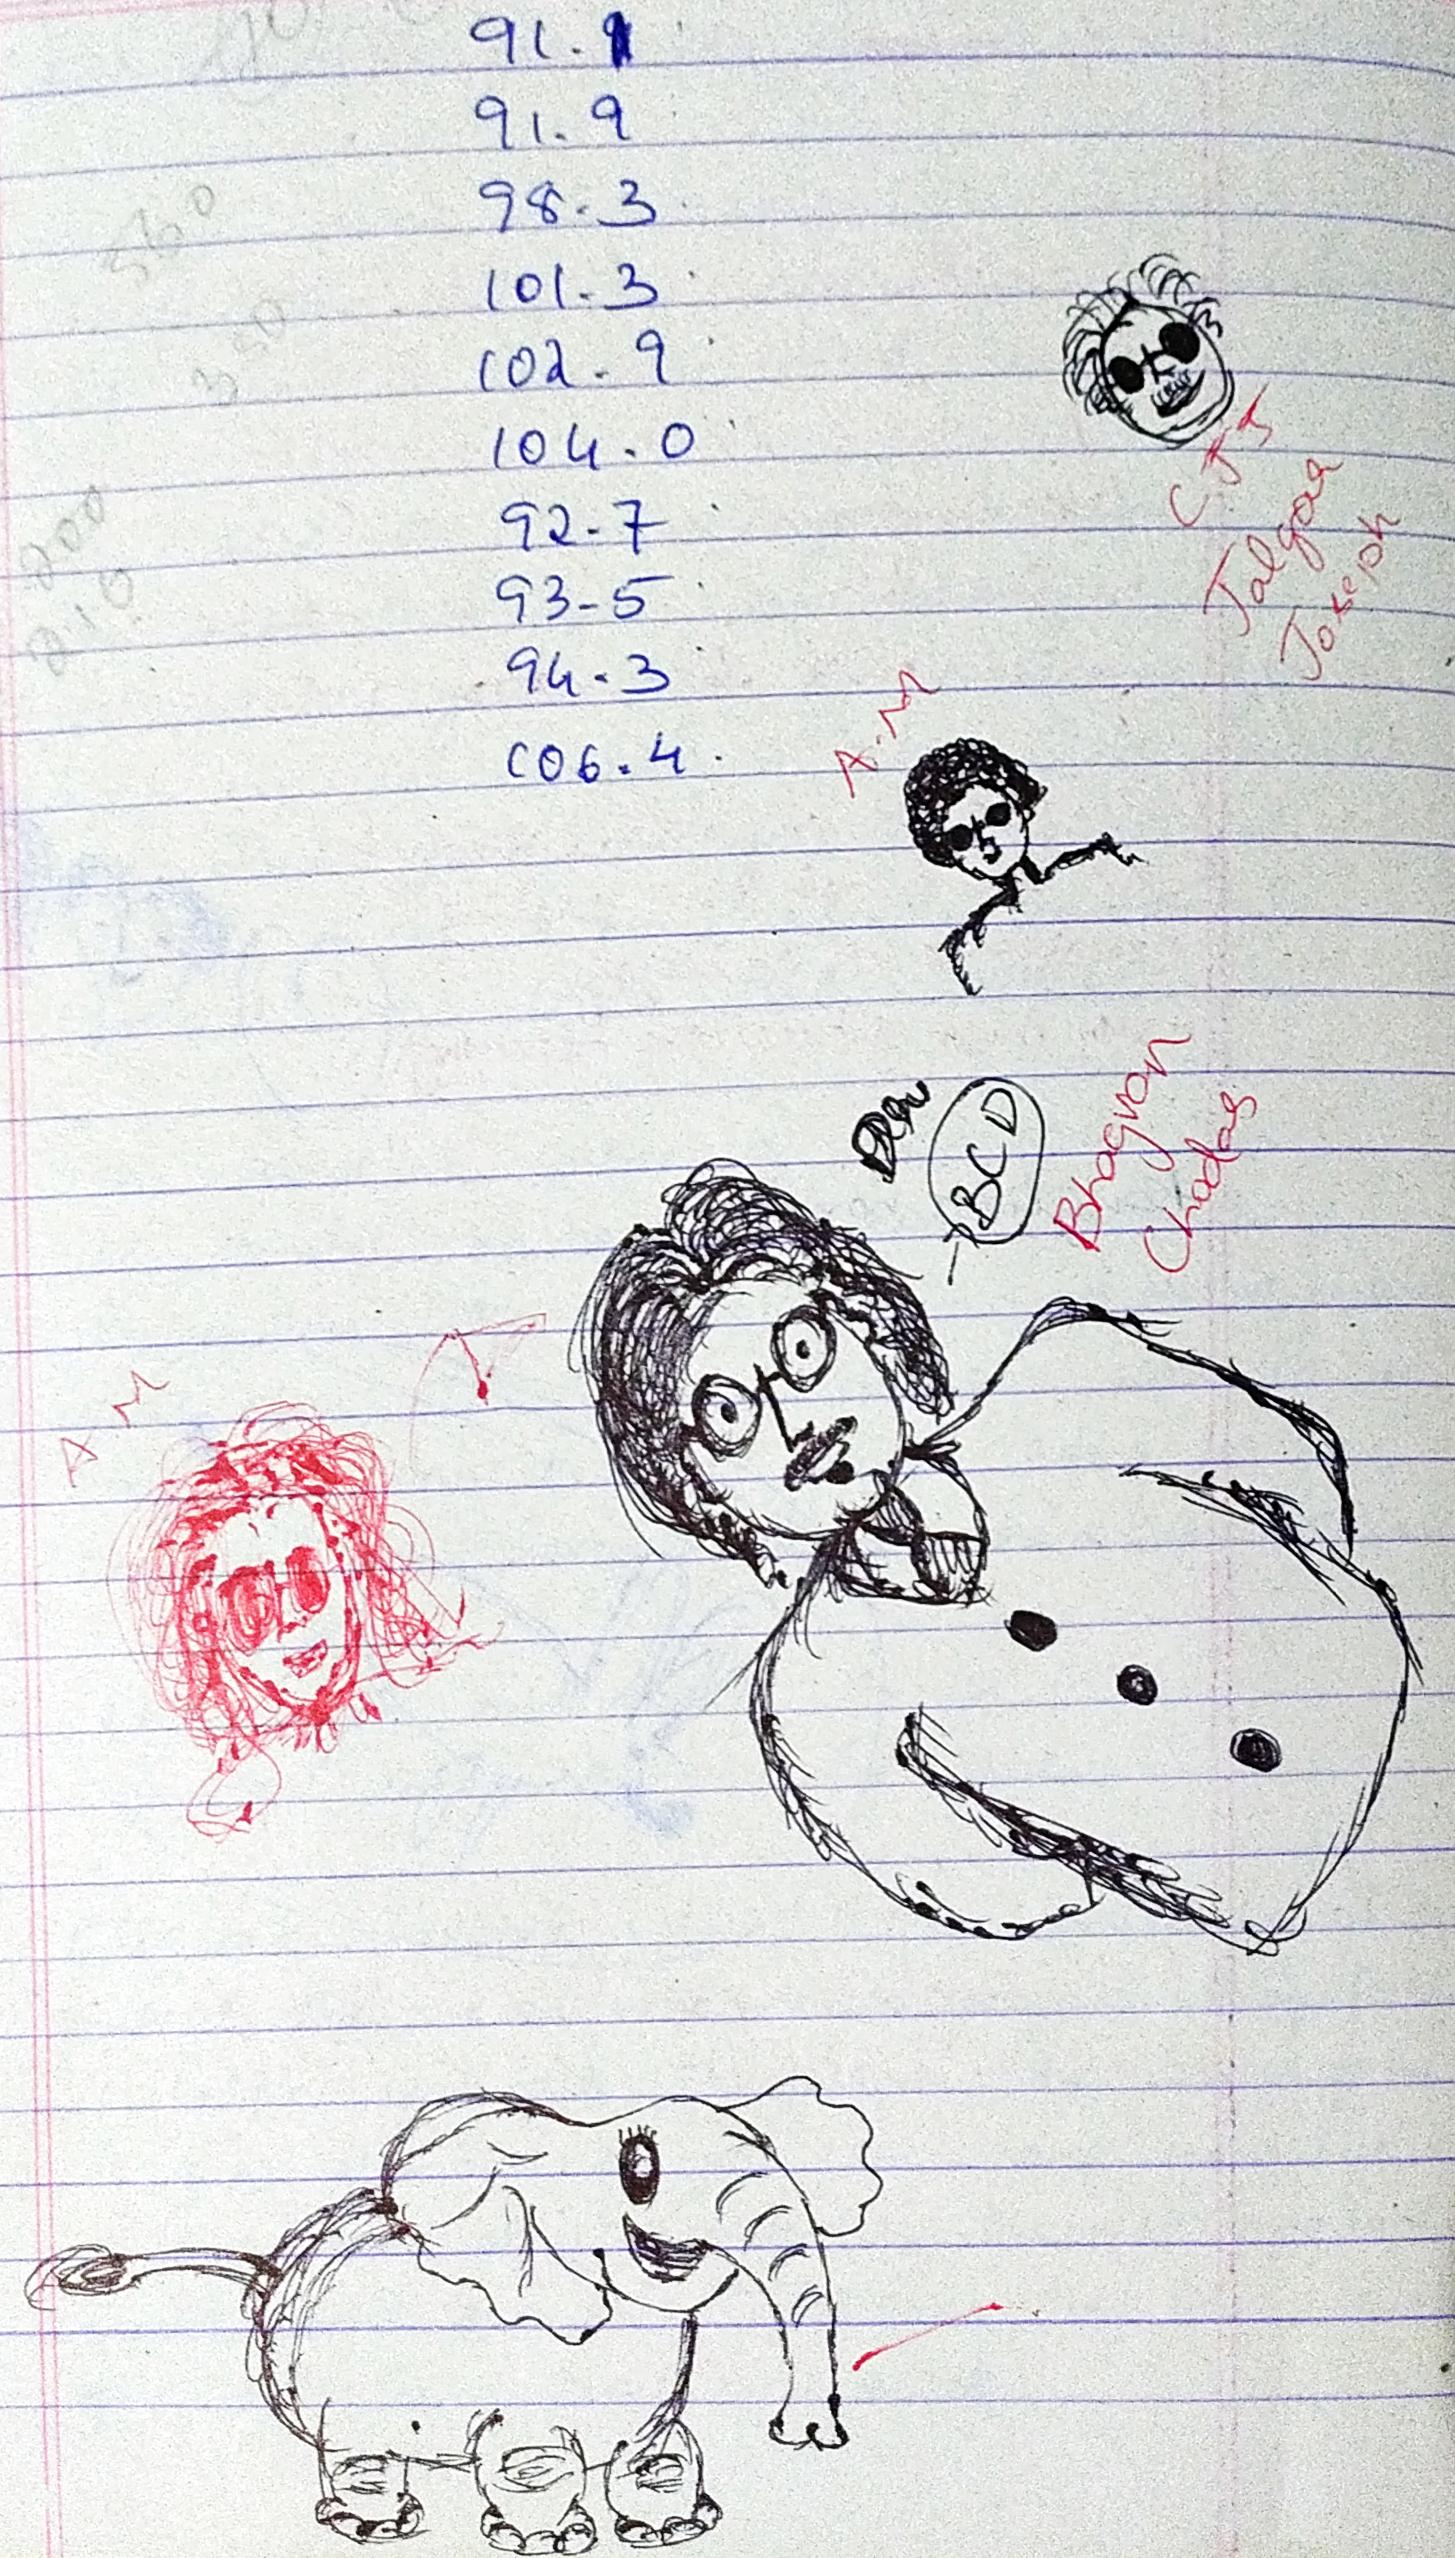 91.1
91.9
98.3
101.3
102.9
104.0
92.7
93.5
94.3
106.4
560
50
3
200
210
C.J.J
Jalgaa
Joseph
A.M
BCD
Bhagvan
Chadas
A M